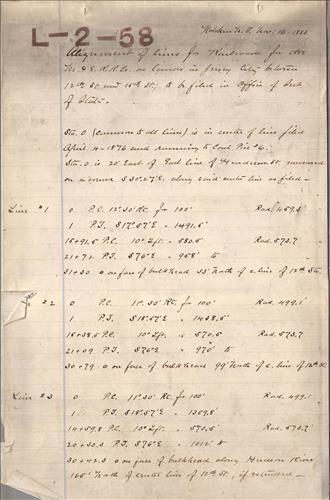 L-2-58
Hoboken N.J. Nov. 16-1880
Alignment of lines for Railroads for the
M. & E. R.R. Co. on lands in Jersey City between
12th St. and 15th St., to be filed in Office of Sect
of State.
Sta. 0 (common to all lines) is in center of line filed
April 4-1876 and running to Coal Pier #6.
Sta. 0 is 20' East of East line of Henderson St. measured
on a course S30°27'E. along said center line as filed-
Line #1 0 P.C. 12°30' Rt. for 100' Rad. 459.3'
1 P.T. S17°57'E = 1491.5'
15+91.5 P.C. 10° Lft. = 580.5' Rad. 573.7
21+72 P.T. S76°E = 958' to
31+30 0 on face of bulkhead 33' North of c. line of 12th St.
2 0 P.C. 11°30' Rt. for 100' Rad. 499.1'
1 P.T. S18°57'E = 1438.5'
15+38.5 P.C. 10° Lft. = 570.5' Rad. 573.7
21+09 P.T. S76°E = 970' to
30+79 0 on face of bulkhead 99' North of c. line of 12th St.
Line 3 0 P.C. 11°30' Rt. for 100' Rad. 499.1
1 P.T. S18°57'E = 1359.8'
14+59.8 P.C. 10° Lft. = 570.5' Rad. 573.7'
20+30.3 P.T. S76°E = 1012' to
30+42.3 0 on face of bulkhead along Hudson River
165' North of center line of 12th St., if extended-